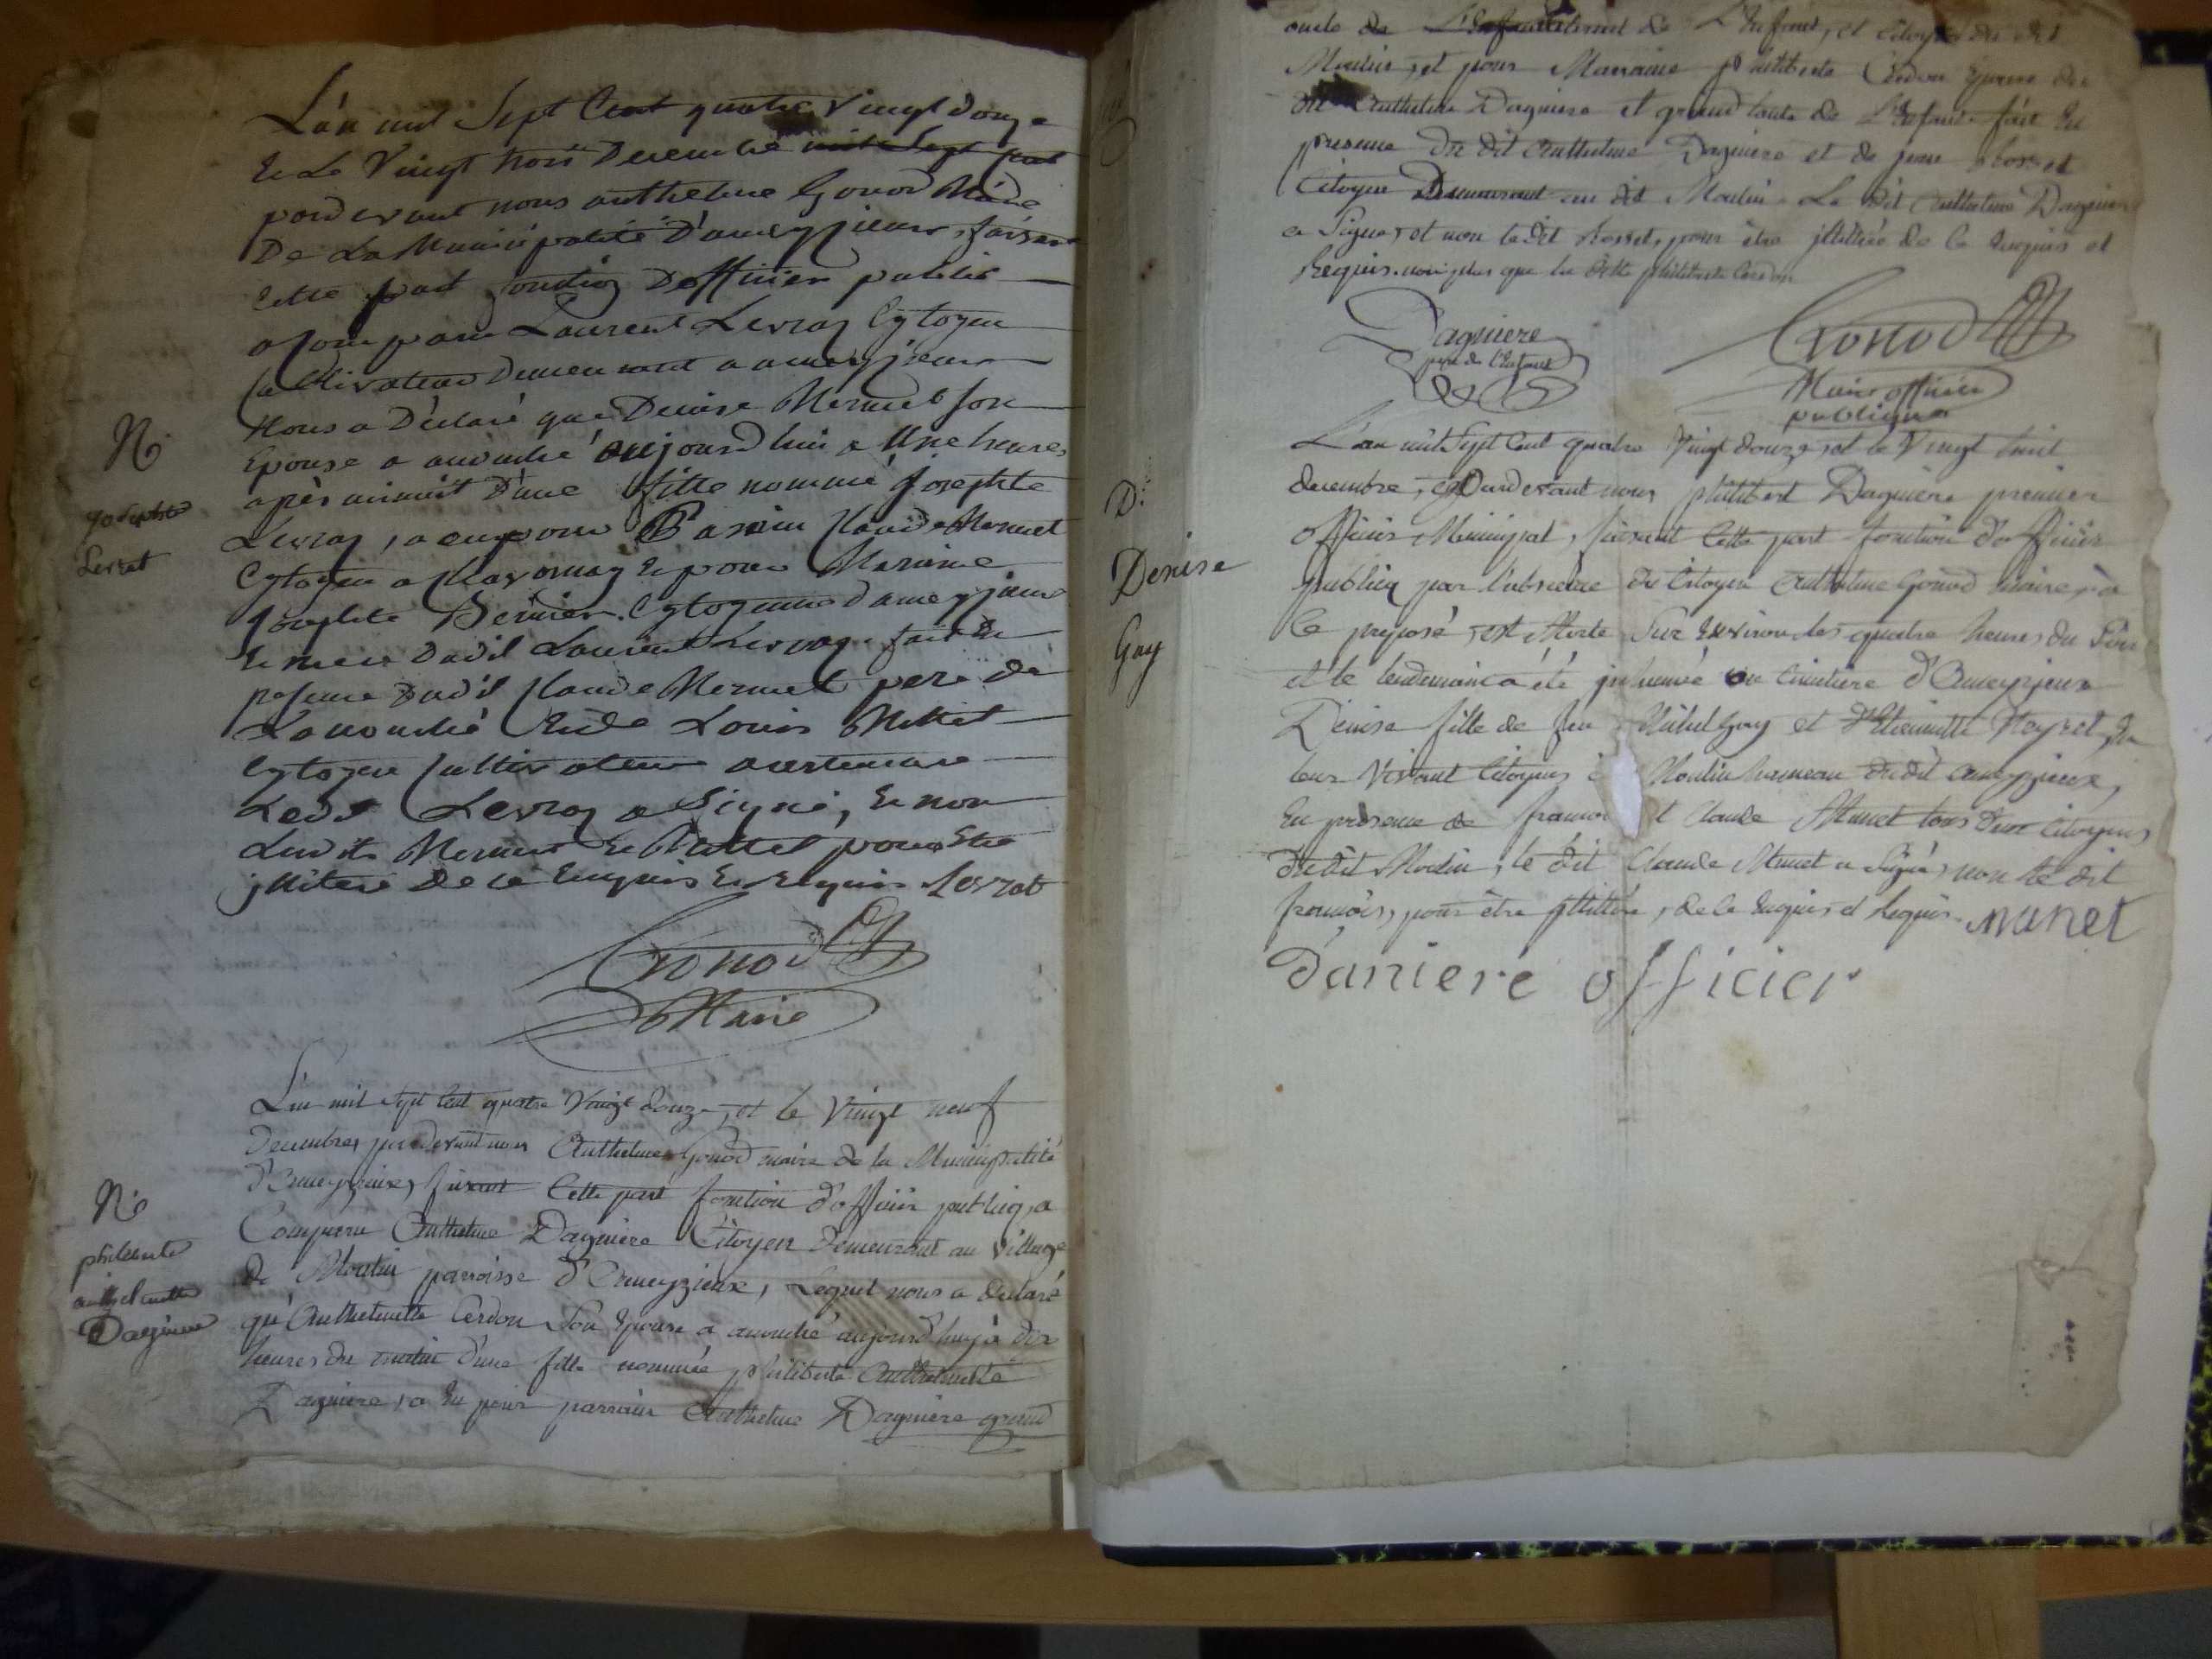 L'an mil Sept Cent quatre Vingt douze
Et Le Vingt trois Decembre mil Sept Cent
pardevant nous anthelme Gonod Maire
De La Municipalité D'ameyzieux, faisant
cette part fonction D'officier public
a Comparu Laurent Levraz Cytoyen
Cultivateur Demeurant a ameyzieux
Nous a Déclaré que Denise Mermet Son
Epouse a accouché aujourd'hui a Une heure
après minuit D'une fille nommé Josephte
Levraz, a eu pour Parain Claude Mermet
Cytoyen a Et pour Maraine
Josephte Bernier Cytoyenne d'ameyzieux
Dudit Laurent Levraz fait En
presence Dudit Claude Mermet pere de
L'accouché Et de Louis Mottet
Cytoyen Cultivateur
Ledit Levraz a Signé, Et non
Lesdits Mermet Et Mottet pour Etre
jlliteré De ce Enquis Et Requis Levrat
Gonod
Maire
N.
Josephte
Levrat
L'an mil Sept Cent quatre Vingt douze, et le Vingt neuf
Decembre, pardevant nous Anthelme Gonod maire de la Municipalité
d'Ameyzieux, faisant Cette part fonction d'officier publiq, a
Comparu Anthelme Dagniere Citoyen Demeurant au Village
de Moulin parroisse d'Ameyzieux, Lequel nous a declaré
qu'Anthelmette Cerdon Son Epouse a accouché aujourd'huy à dix
heures du matin d'une fille nommée philiberte Anthelmette
Dagniere, a Eu pour parrain Anthelme Dagniere grand
N.
philiberte
anthelmette
Dagniere
oncle de L'Enfant, et Citoyen du dit
Moulin, et pour Marraine philiberte Cerdon Epouse du
dit Anthelme Dagniere et grand tante de L'Enfant fait En
presence du dit Anthelme Dagniere et de Rosset
Citoyen Demeurant au dit Moulin Le dit Anthelme Dagniere
a Signé, et non le dit Rosset, pour être jllitéré de ce Enquis et
Requis. non plus que la ditte philiberte Cerdon
Dagniere
pere de l'Enfant
Gonod
Maire officier
publique
L'an mil Sept Cent quatre Vingt douze, et le Vingt huit
decembre, pardevant nous philibert Dagniere premier
officier Municipal, faisant Cette part fonction d'officier
publiq par l'absence du Citoyen Anthelme Gonod maire, à
Ce preposé, est Morte Sur Environ les quatre heures du Soir
et le lendemain a été inhumée au Cimetiere d'Ameyzieux
Denise fille de feu Michel Guy et d'Etiennette Peyret En
leur Vivant Citoyens Moulin hameau dudit ameyzieux,
En presence de Claude Munet tous deux Citoyens
dudit Moulin, le dit Claude Munet a Signé, non le dit
françois, pour être jllitéré, de ce Enquis et Requis. Munet
Daniere officier
D.
Denise
Guy